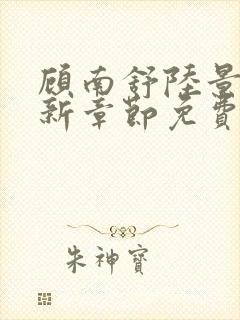 顧南舒陸景
新章節免費
朱神寶